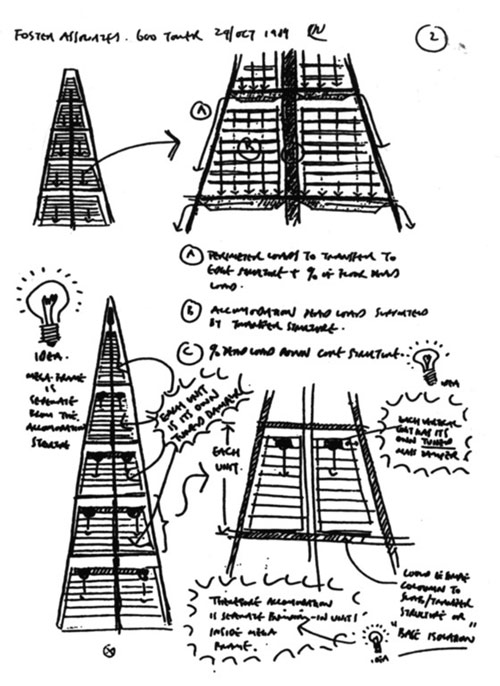 FOSTER ASSOCIATES. 600 TOWER 29/OCT 1989
2
A
B
A PERIMETER LOADS TO TRANSFER TO
EDGE STRUCTURE + % OF FLOOR DEAD
LOAD.
B ACCOMODATION DEAD LOAD SUPPORTED
BY TRANSFER STRUCTURE.
C % DEAD LOAD DOWN CORE STRUCTURE.
IDEA.
MEGA FRAME
IS
SEPARATE
FROM THE
ACCOMODATION
STORIES
EACH UNIT
IS ITS OWN
TUNED DAMPER
IDEA
EACH VERTICAL
UNIT HAS ITS
OWN TUNED
MASS DAMPER
EACH
UNIT.
THEREFORE ACCOMODATION
IS SEPARATE BUILDING-IN UNIT!
INSIDE MEGA
FRAME.
COULD BE BASE
COLUMN TO
SLAB/TRANSFER
STRUCTURE OR
"BASE ISOLATION
IDEA